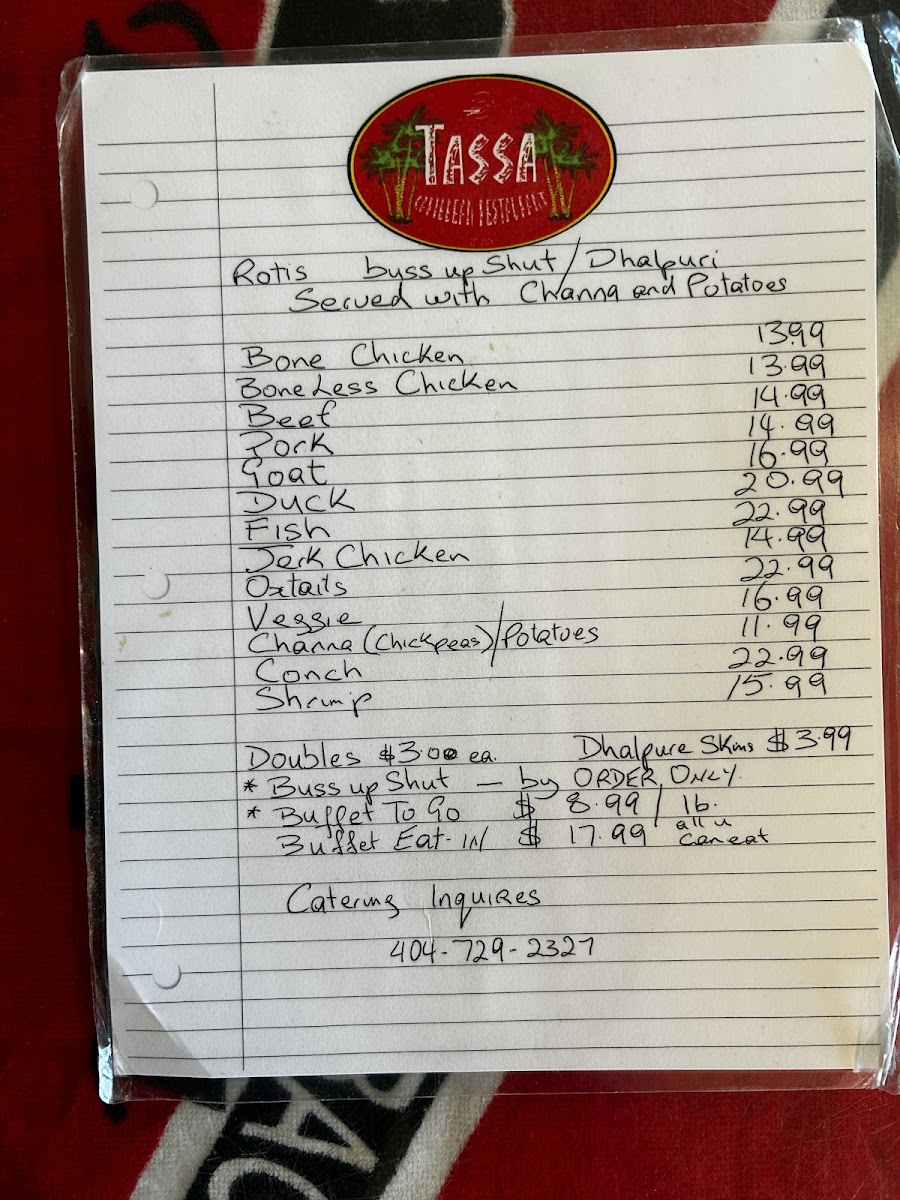 TASSA
CARIBBEAN RESTAURANT
Rotis buss up Shut / Dhalpuri
Served with Channa and Potatoes
Bone Chicken 13.99
BoneLess Chicken 13.99
Beef 14.99
Pork 14.99
Goat 16.99
Duck 20.99
Fish 22.99
Jerk Chicken 14.99
Oxtails 22.99
Veggie 16.99
Channa (Chickpeas)/Potatoes 11.99
Conch 22.99
Shrimp 15.99
Doubles $3.00 ea. Dhalpure Skins $3.99
* Buss up Shut — by ORDER ONLY.
* Buffet To Go $ 8.99 / lb.
Buffet Eat-IN $ 17.99 all u can eat
Catering Inquires
404-729-2327